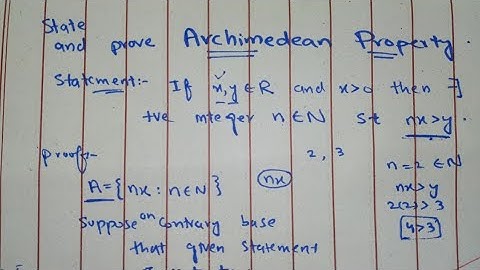 State
and prove Archimedean Property.
Statement:- If x,y ∈ R and x>0 then ∃
+ve integer n∈N st nx>y.
proof:-
2, 3
A = {nx : n∈N} nx
n=2 ∈ N
nx>y
2(2)>3
4>3
Suppose on contrary base
that given statement